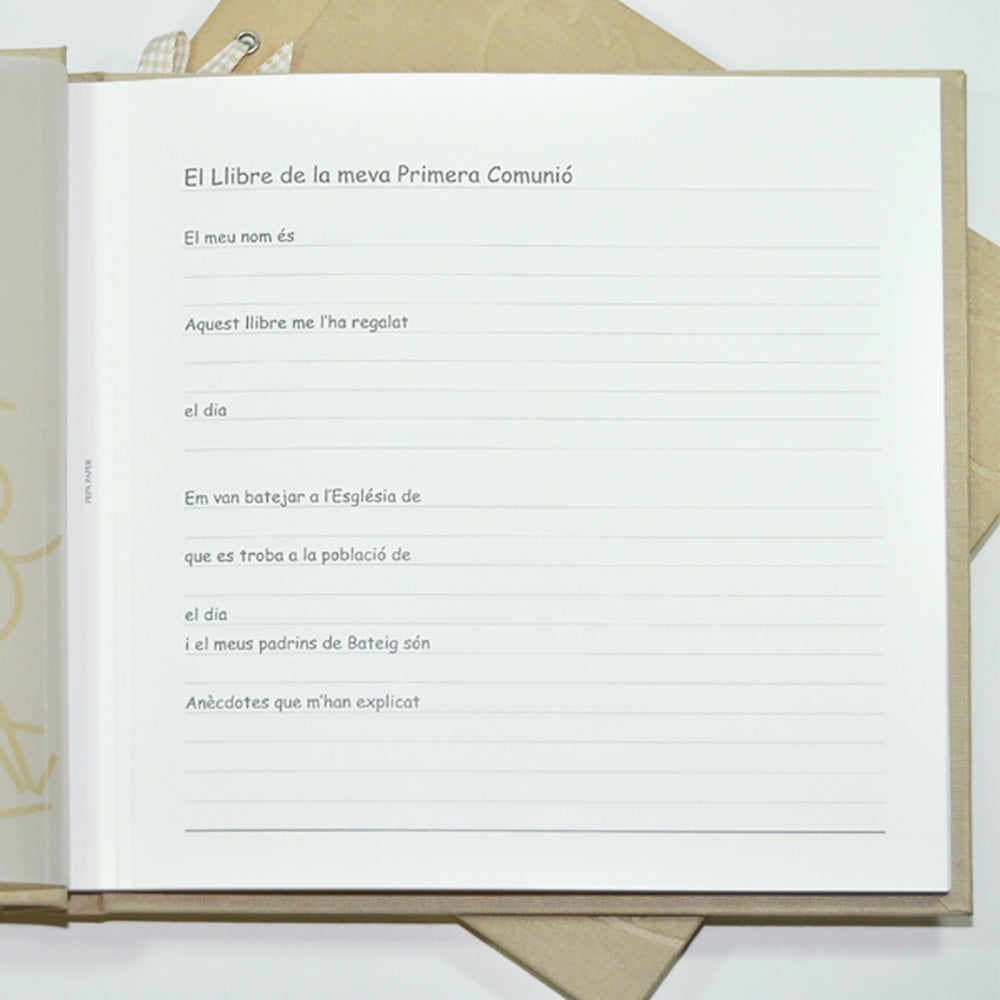 El Llibre de la meva Primera Comunió
El meu nom és
Aquest llibre me l'ha regalat
el dia
Em van batejar a l'Església de
que es troba a la població de
el dia
i el meus padrins de Bateig són
Anècdotes que m'han explicat
PEPA PAPER